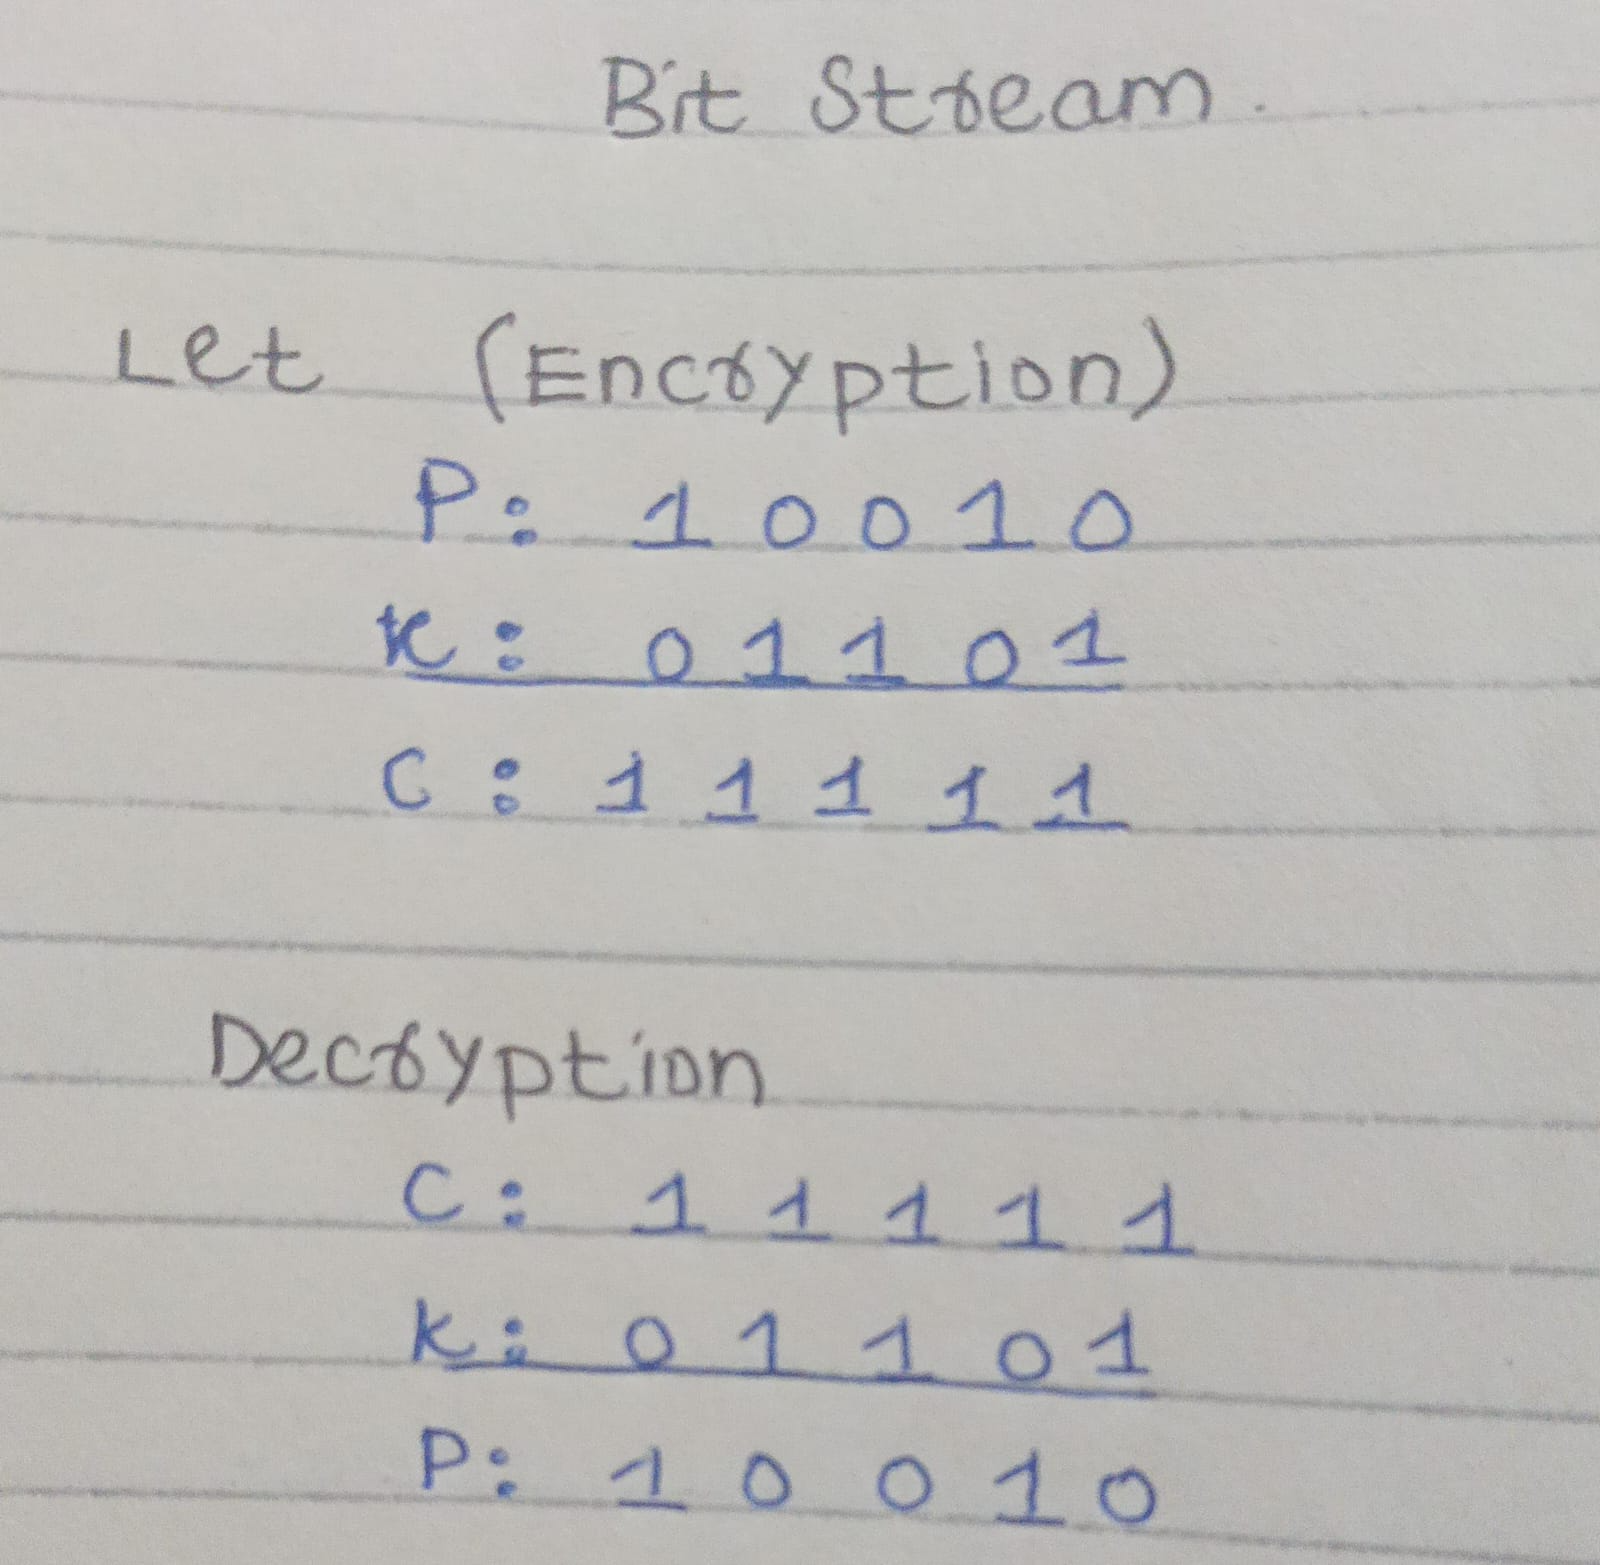 Bit Stream.
Let (Encryption)
P: 1 0 0 1 0
K: 0 1 1 0 1
C: 1 1 1 1 1
Decryption
C: 1 1 1 1 1
K: 0 1 1 0 1
P: 1 0 0 1 0